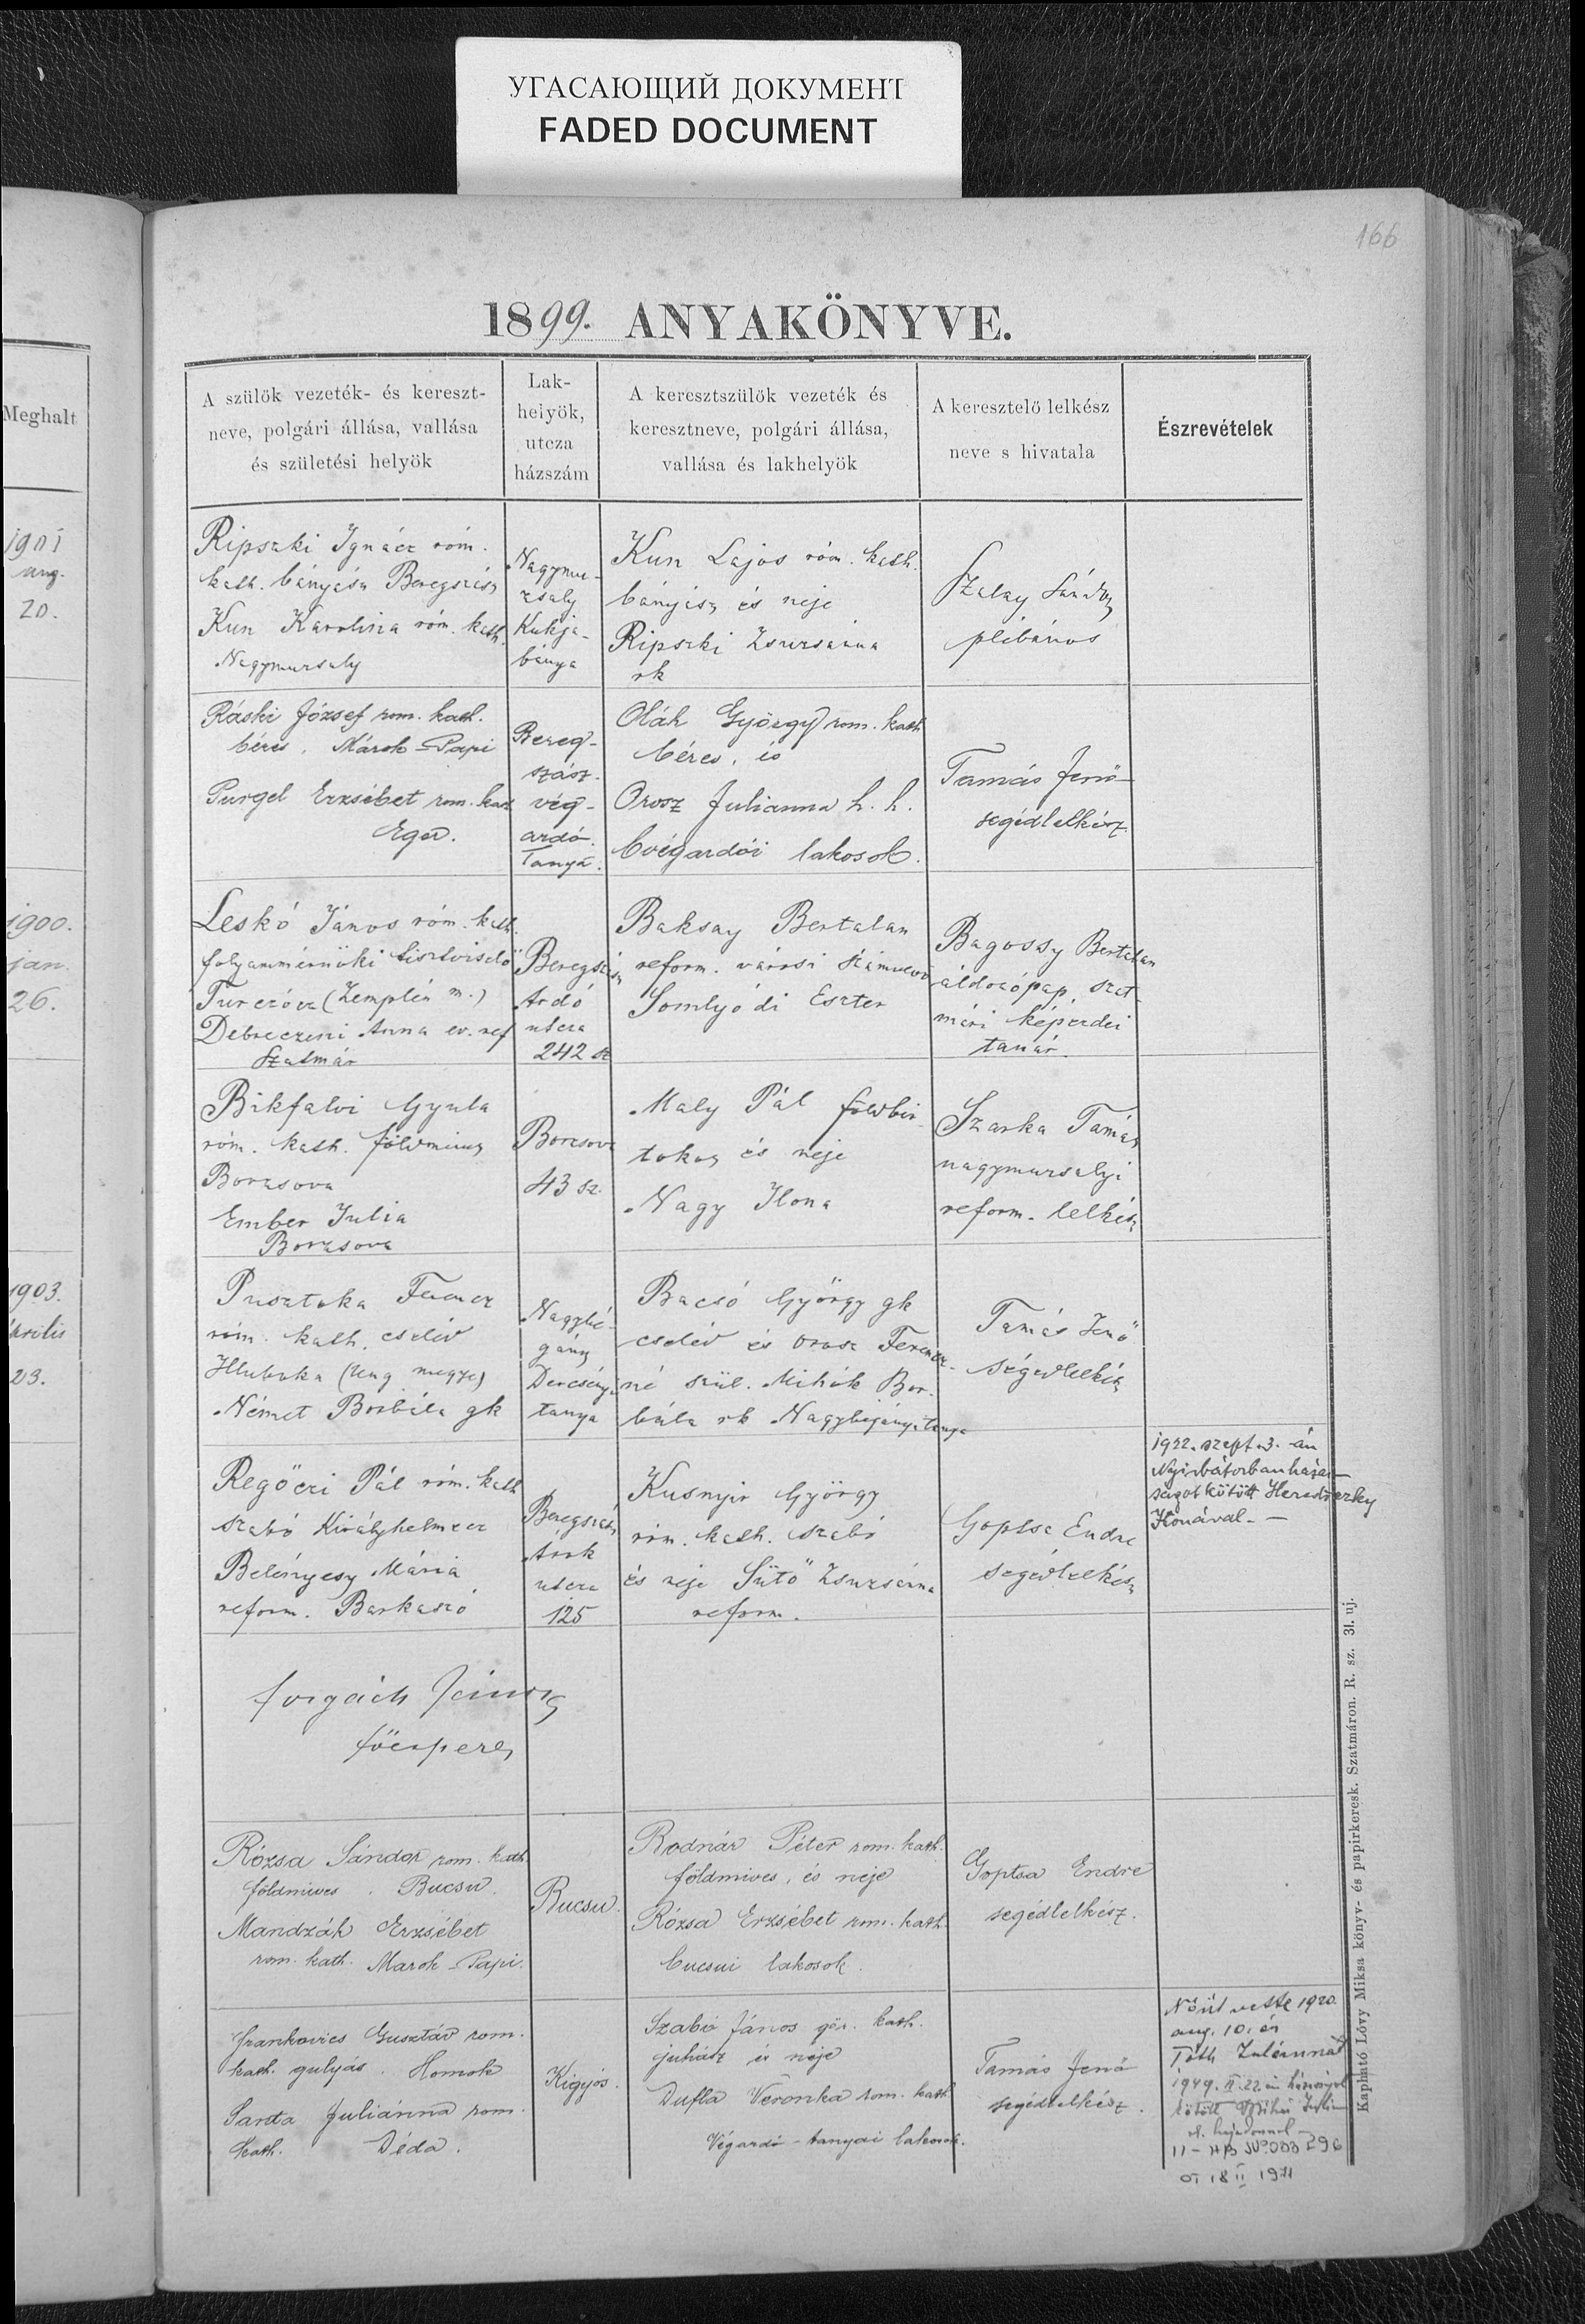 УГАСАЮЩИЙ ДОКУМЕНТ
FADED DOCUMENT
166
1899. ANYAKÖNYVE.
Meghalt
1901
aug.
20.
1900.
jan.
26.
1903.
23.
A szülők vezeték- és kereszt-
neve, polgári állása, vallása
és születési helyök
Lak-
helyök,
utcza
házszám
A keresztszülök vezeték és
keresztneve, polgári állása,
vallása és lakhelyök
A keresztelő lelkész
neve s hivatala
Észrevételek
Ripszki Ignácz róm.
kath. bányász Beregszász
Kun Karolina róm. kath.
Nagymuzsaly
Nagymu-
zsaly
Kukja-
bánya
Kun Lajos róm. kath.
bányász és neje
Ripszki Zsuzsánna
rk
Szalay Sándor
plébános
Ráski József rom. kath.
béres, Márok-Papi
Purgel Erzsébet rom. kath.
Eger.
Bereg-
szász.
vég-
ardó.
Tanya.
Oláh György rom. kath
béres, és
Orosz Julianna h. h.
bvégardói lakosok.
Tamás Jenő
segédlelkész.
Leskó János róm. kath.
folyammérnöki tisztviselő
Turczóva (Zemplén m.)
Debreczeni Anna ev. ref
Szatmár
Beregszász
Ardó
utcza
242 sz
Baksay Bertalan
reform. városi számvevő
Somlyódi Eszter
Bagossy Bertalan
áldozópap, szat
mári képezdei
tanár.
Bikfalvi Gyula
róm. kath. földmives
Borzsova
Ember Julia
Borzsova
Borzsova
43 sz.
Maly Pál földbir-
tokos és neje
Nagy Ilona
Szarka Tamás
nagymuzsalyi
reform. lelkész
Pusztoka Ferencz
róm. kath. cseléd
Hluboka (Ung megye)
Német Borbála gk
Nagybé-
gány
Dercsényi
tanya
Bacsó György gk
cseléd és Orosz Ferencz-
né szül. Mihók Bor-
bála rk Nagybégányi tanya
Tamás Jenő
segédlelkész
Regőczi Pál róm. kath
szabó Királyhelmecz
Belényesy Mária
reform. Barkaszó
Beregszász
Árok
utcza
125
Kusnyir György
róm. kath. szabó
és neje Sütő Zsuzsánna
reform.
Goptsa Endre
segédlelkész
1922. szept. 3. án
Nyirbátorban házas-
ságot kötött
Ilonával. —
Forgách János
főesperes
Rózsa Sándor rom. kath.
földmives, Bucsu.
Mandzák Erzsébet
rom. kath. Marok-Papi.
Bucsu.
Bodnár Péter rom. kath.
földmives, és neje
Rózsa Erzsébet rom. kath.
bucsui lakosok.
Goptsa Endre
segédlelkész.
Frankovics Gusztáv rom.
kath. gulyás. Homok
Santa Juliánna rom.
kath. Déda.
Kigyós.
Szabó János gör. kath.
juhász és neje
Dufla Veronka rom. kath
Végardó-tanyai lakosok.
Tamás Jenő
segédlelkész.
Nőül vette 1920.
aug. 10. én
Tóth
1949. II. 22
kötött
296
от 18 II 1971
Kapható Lővy Miksa könyv- és papirkeresk. Szatmáron. R. sz. 31. uj.